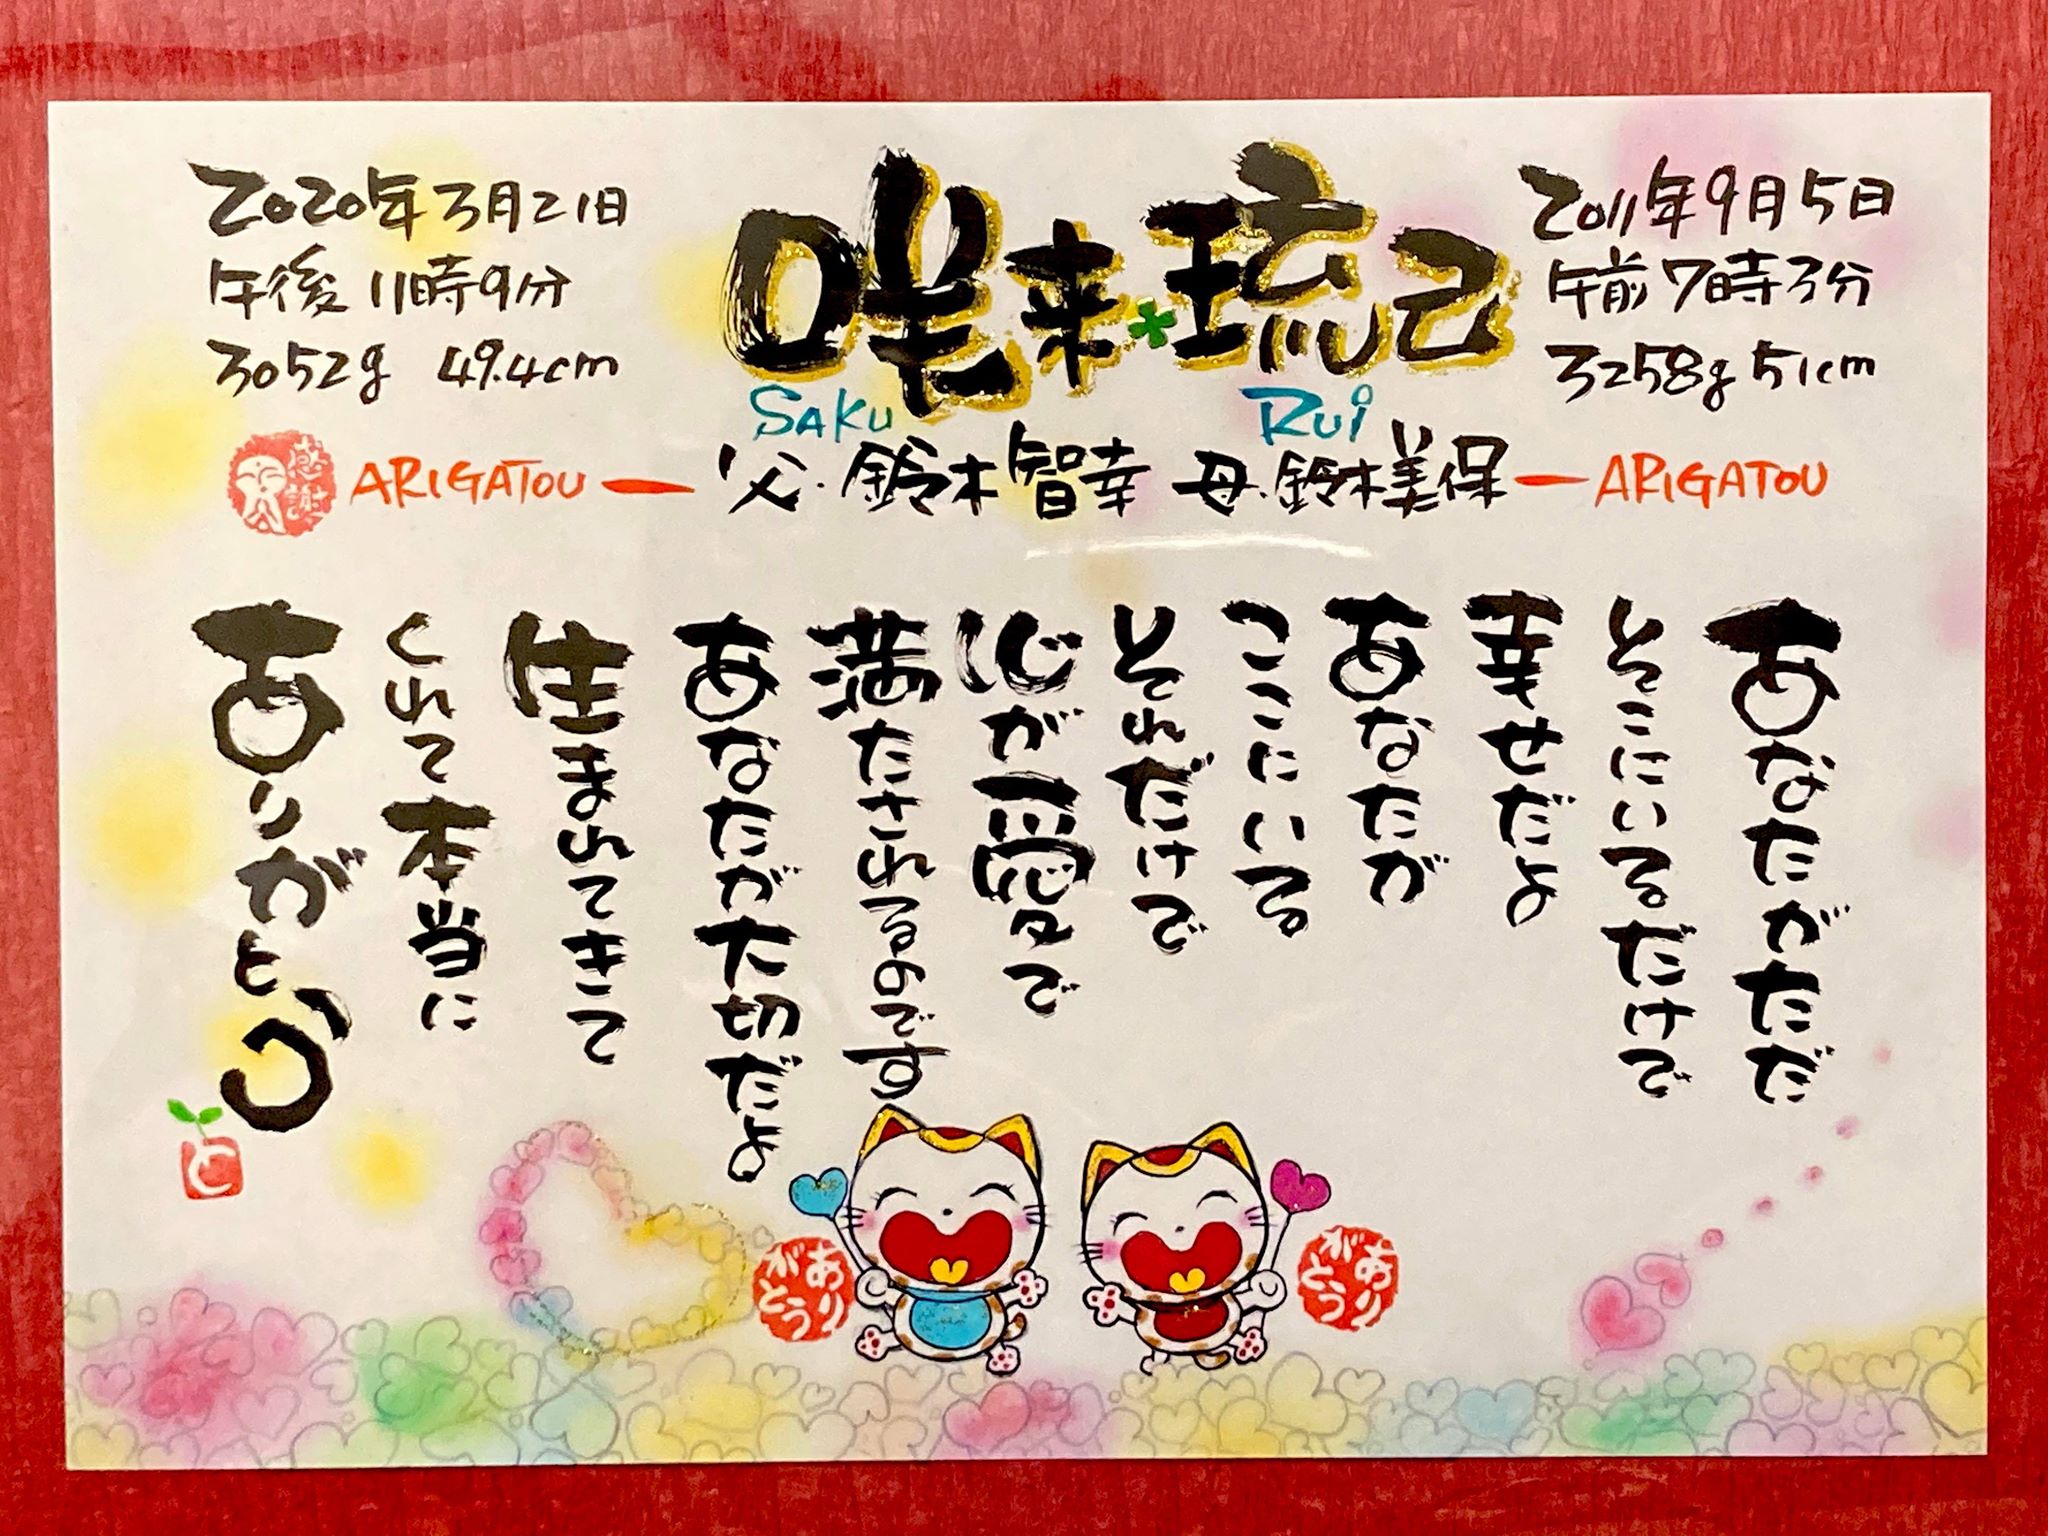 咲来・琉己
SAKU
RUi
2020年3月21日
午後11時9分
3052g 49.4cm
2011年9月5日
午前7時3分
3258g 51cm
感謝
ARIGATOU ー 父・鈴木智幸 母・鈴木美保 ー ARIGATOU
あなたがただ
そこにいるだけで
幸せだよ
あなたが
ここにいる
それだけで
心が愛で
満たされるのです
あなたが大切だよ
生まれてきて
くれて本当に
ありがとう
と
ありがとう
ありがとう